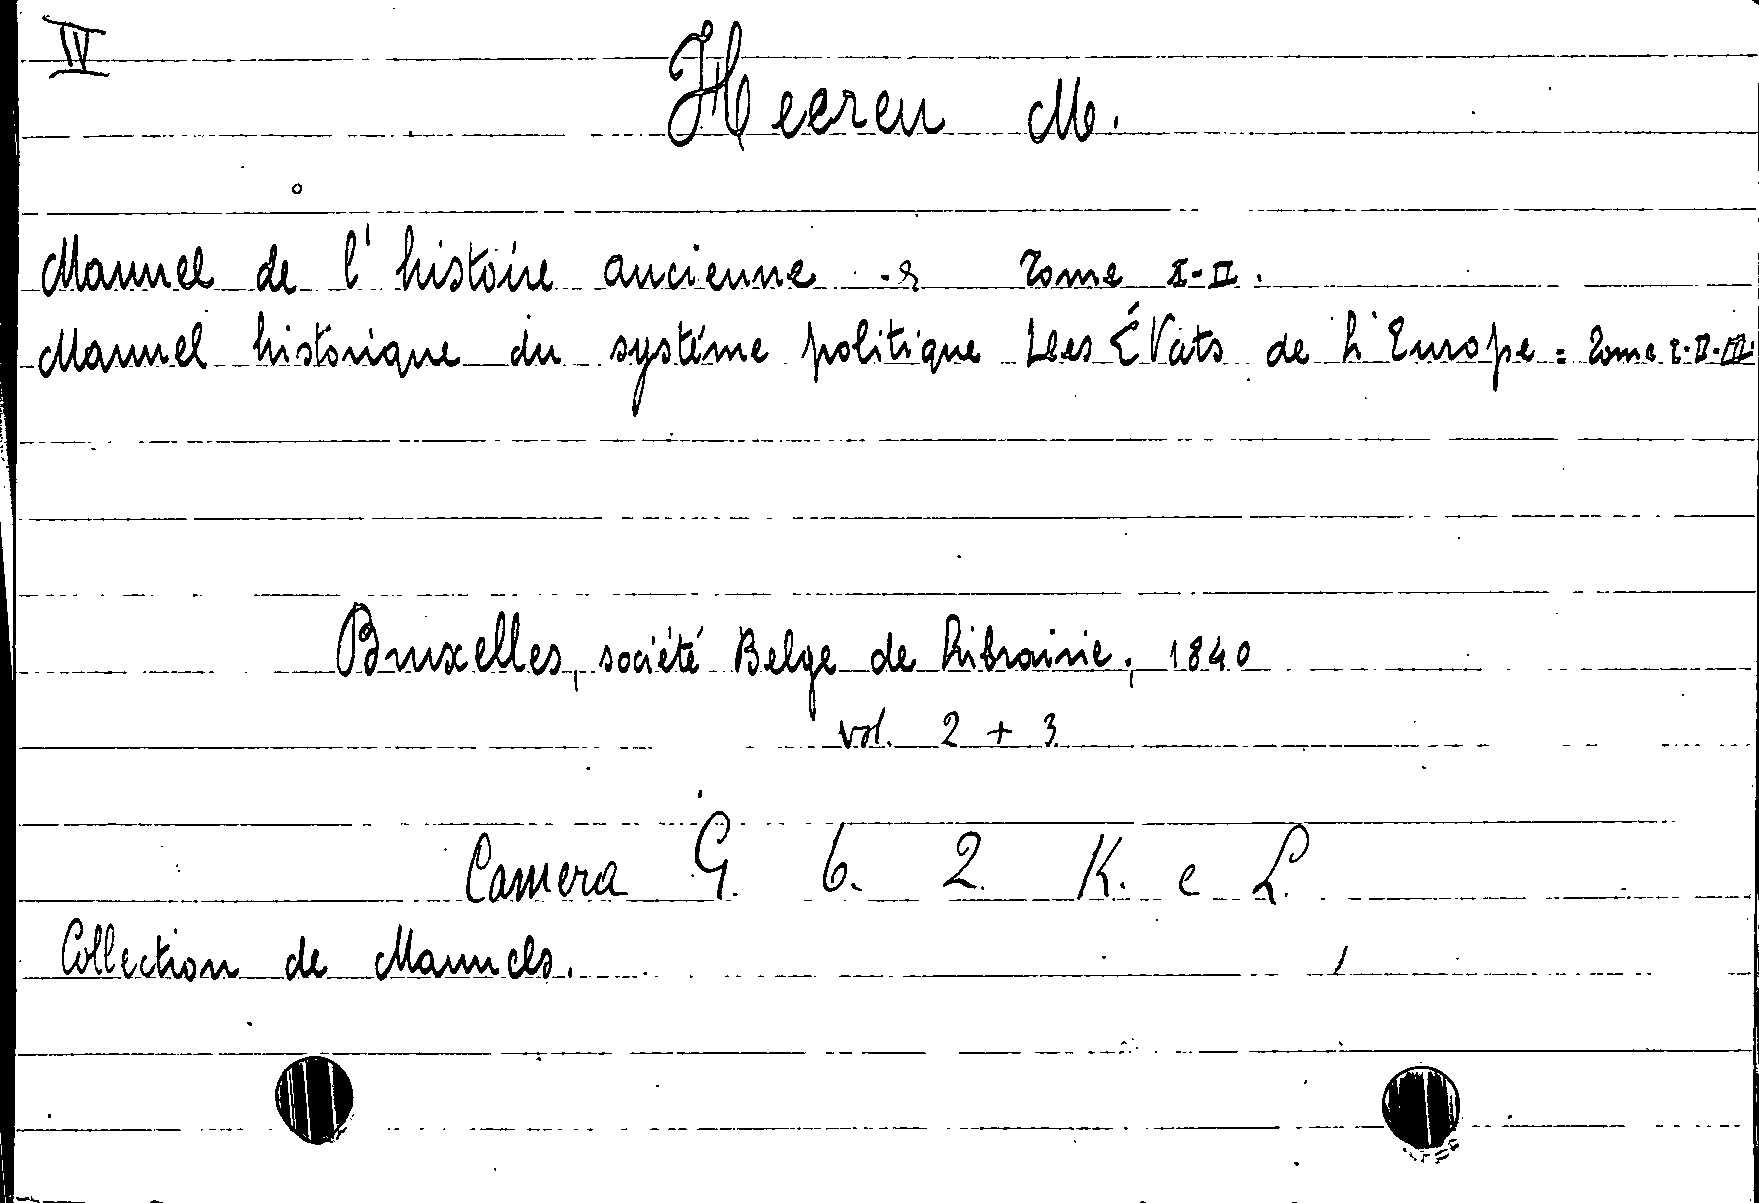 IV
Heeren M.
Manuel de l'histoire ancienne Tome I-II.
Manuel historique du systéme politique des États de l'Europe = Tome I-II-III.
Bruxelles, société Belge de Librairie, 1840
vol. 2 + 3
Camera G. 6. 2. K. e L.
Collection de Manuels.